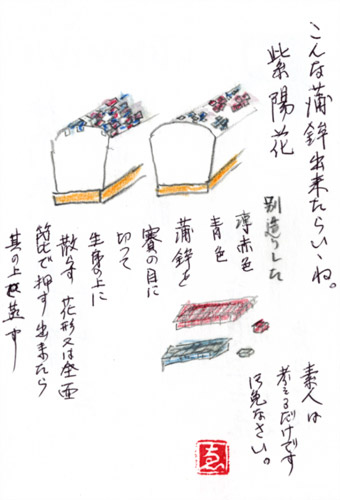 こんな蒲鉾出来たらいゝね。
紫陽花
別造りした
薄赤色
青色
蒲鉾を
賽の目に
切って
生身の上に
散らす 花形又は全面
箆で押す 出来たら
其の上で蒸す
素人は
考えるだけです
御免なさい。
ゑ